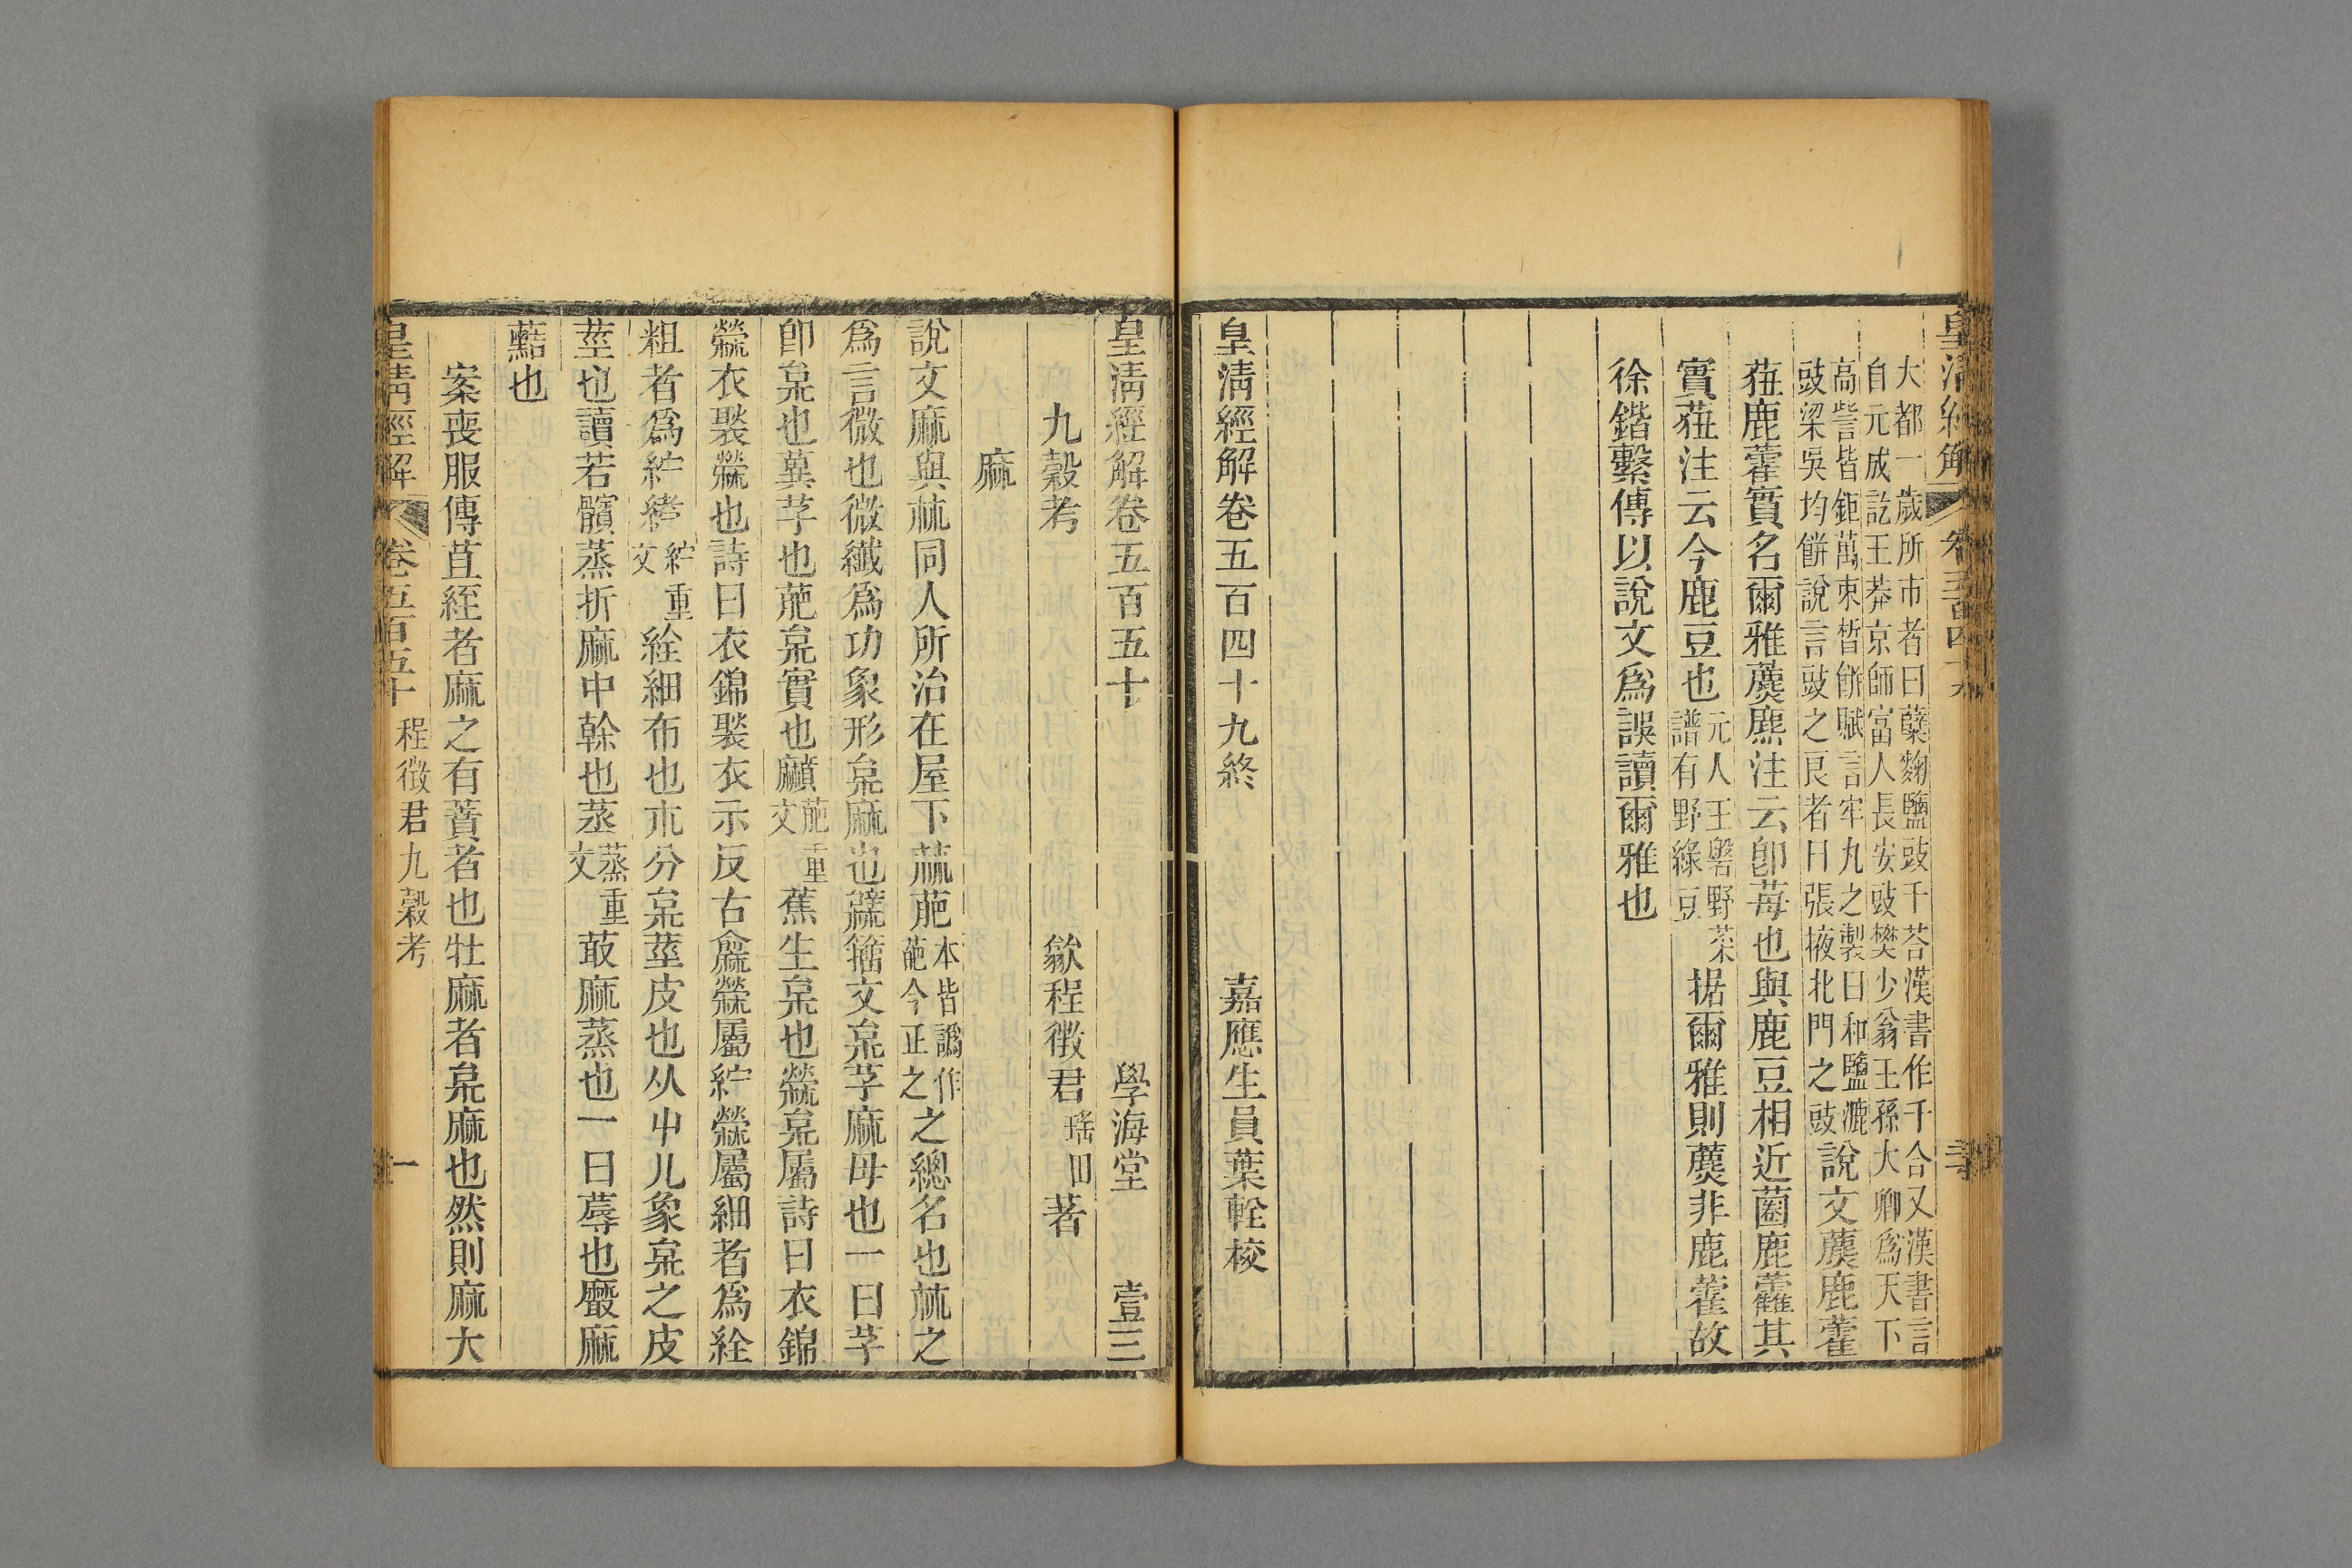 皇清經解 卷五百四十九
大都一歲所市者曰蘖麴鹽豉千荅漢書作千合又漢書言
自元成訖王莽京師富人長安豉樊少翁王孫大卿爲天下
高訾皆鉅萬束皙餅賦言牢九之製曰和鹽漉
豉梁吳均餅說言豉之良者曰張掖北門之豉
說文藨鹿藿
莥鹿藿實名爾雅藨麃注云卽莓也與鹿豆相近蔨鹿虇其
實莥注云今鹿豆也
元人王磐野菜
譜有野綠豆
据爾雅則藨非鹿藿故
徐鍇繫傳以說文爲誤讀爾雅也
皇清經解卷五百四十九終 嘉應生員葉輇校
皇清經解卷五百五十 學海堂 壹三
九穀考 歙程徵君瑤田著
麻
說文麻與𣏟同人所治在屋下𣏟萉
本皆譌作
葩今正之
之總名也𣏟之
爲言微也微纖爲功象形枲麻也𦿆籒文枲芓麻母也一曰芓
卽枲也䔬芓也萉枲實也黂
萉重
文
蕉生枲也檾枲屬詩曰衣錦
檾衣褧檾也詩曰衣錦褧衣示反古㡏檾屬紵檾屬細者爲絟
粗者爲紵𦃓
紵重
文
絟細布也朩分枲莖皮也从屮八象枲之皮
莖也讀若髕蒸折麻中榦也䒱
蒸重
文
菆麻蒸也一曰蓐也黀麻
䕸也
案喪服傳苴絰者麻之有蕡者也牡麻者枲麻也然則麻大
皇清經解 卷五百五十 程徵君九穀考 一